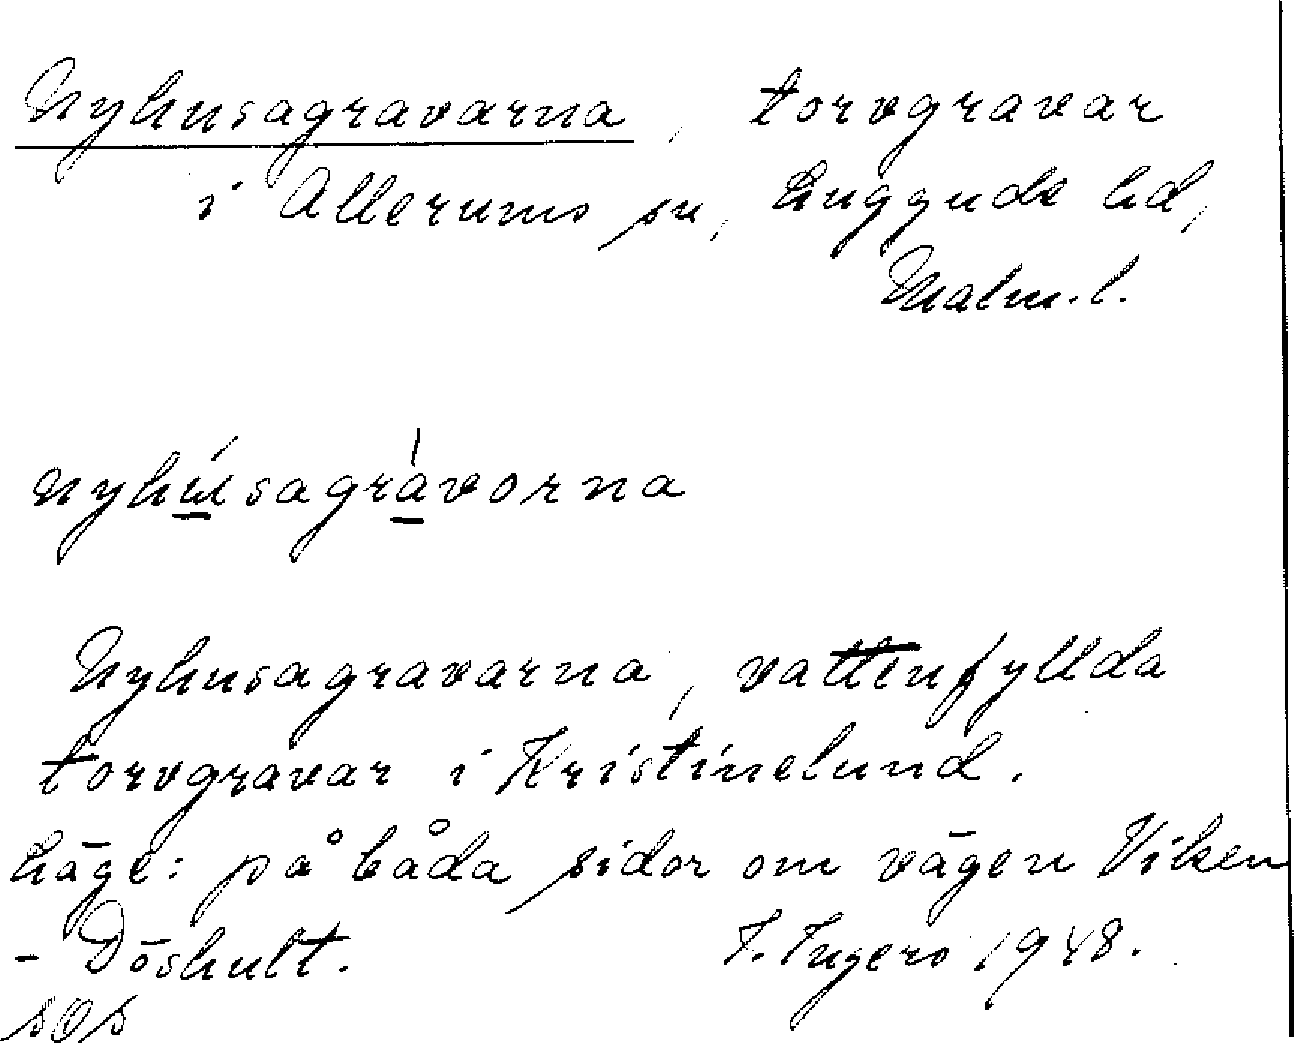 Nyhusagravarna, torvgravar
i Allerums sn, Luggude hd,
Malm. l.
nyhúsagrávorna
Nyhusagravarna, vattenfyllda
torvgravar i Kristinelund.
Läge: på båda sidor om vägen Viken
- Döshult. I. Ingers 1948.